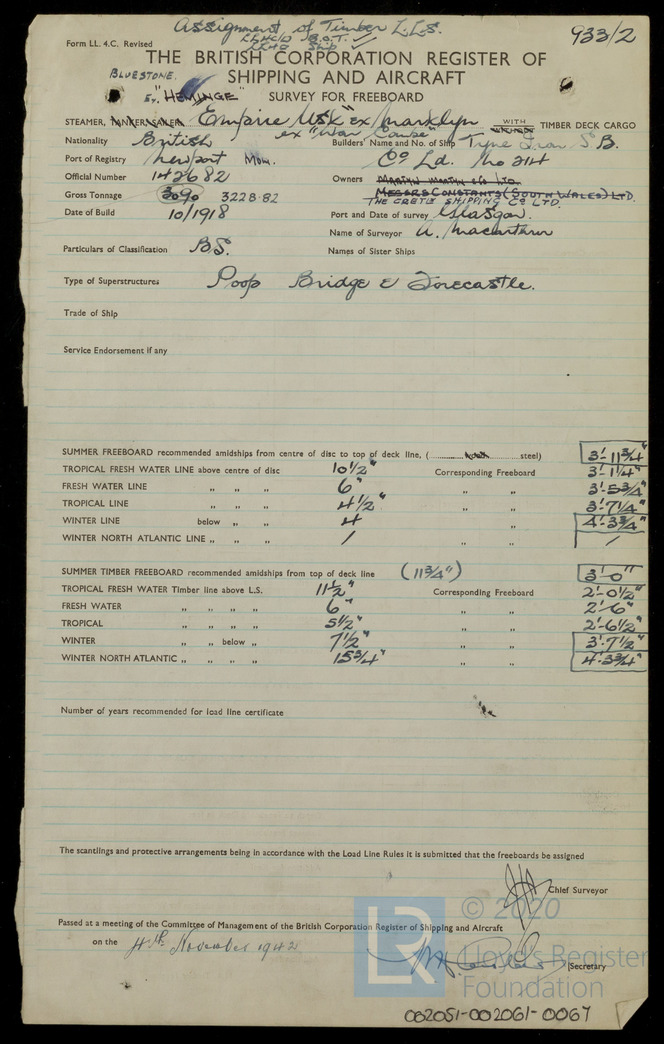 Assignment of Timber L.L.S.
933/2
Form LL. 4.C. Revised
Ship
THE BRITISH CORPORATION REGISTER OF
SHIPPING AND AIRCRAFT
BLUESTONE.
SURVEY FOR FREEBOARD
Ex. "HEMINGE"
STEAMER, TANKER, SAILER, Empire Usk" ex/Marklyn WITH TIMBER DECK CARGO
ex "War Combe"
Nationality British Builders' Name and No. of Ship Tyne Iron S.B.
Port of Registry Newport Mon. Co Ld. No 214
Official Number 142682 Owners MARTYN MARTYN & Co LTD.
MESSRS CONSTANTS (SOUTH WALES) LTD.
Gross Tonnage 3090 3228.82 THE CRETE SHIPPING CO LTD.
Date of Build 10/1918 Port and Date of survey Glasgow.
Name of Surveyor A. Macarthur
Particulars of Classification B.S. Names of Sister Ships
Type of Superstructures Poop Bridge & Forecastle.
Trade of Ship
Service Endorsement if any
SUMMER FREEBOARD recommended amidships from centre of disc to top of deck line, ( steel) 3'-11¾"
TROPICAL FRESH WATER LINE above centre of disc 10½" Corresponding Freeboard 3'-1¼"
FRESH WATER LINE " " " 6" " " 3'-5¾"
TROPICAL LINE " " " 4½" " " 3'-7¼"
WINTER LINE below " " 4 " 4'-3¾"
WINTER NORTH ATLANTIC LINE " " " / " " /
SUMMER TIMBER FREEBOARD recommended amidships from top of deck line (11¾") 3'-0"
TROPICAL FRESH WATER Timber line above L.S. 11½" Corresponding Freeboard 2'-0½"
FRESH WATER " " " " 6" " " 2'-6"
TROPICAL " " " " 5½" " " 2'-6½"
WINTER " " below " 7½" " " 3'-7½"
WINTER NORTH ATLANTIC " " " " 15¾" " " 4'-3¾"
Number of years recommended for load line certificate
The scantlings and protective arrangements being in accordance with the Load Line Rules it is submitted that the freeboards be assigned
Chief Surveyor
© 2020
Passed at a meeting of the Committee of Management of the British Corporation Register of Shipping and Aircraft
on the 4th November 1942
LR Lloyd's Register
Secretary
Foundation
002051-002061-0067